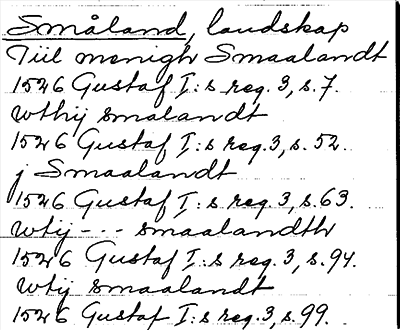 Småland, landskap
Tiil menigh Smaalandt
1526 Gustaf I:s reg. 3, s. 7.
wthij smalandt
1526 Gustaf I:s reg. 3, s. 52.
j Smaalandt
1526 Gustaf I:s reg. 3, s. 63.
wtij --- smaalandth
1526 Gustaf I:s reg. 3, s. 94.
wtij smaalandt
1526 Gustaf I:s reg. 3, s. 99.